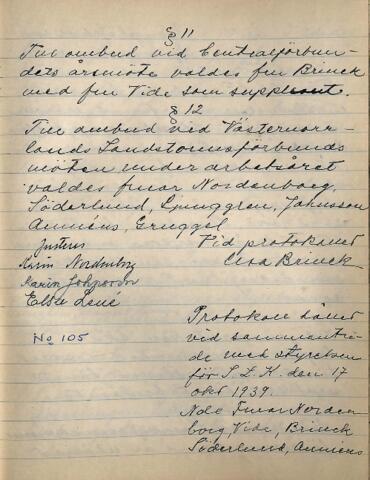 § 11
Till ombud vid Centralförbun-
dets årsmöte valdes fru Brinck
med fru Vide som suppleant.
§ 12
Till ombud vid Västernorr-
lands Landstormsförbunds
möten under arbetsåret
valdes fruar Nordenborg,
Söderlund, Ljunggren, Johnsson
Amnéus, Gruggel
Justeras Vid protokollet
Karin Nordenborg Elsa Brinck
Karin Johnsson
Elsa
No 105
Protokoll fört
vid sammanträ-
de med styrelsen
för S. L. K. den 17
okt 1939.
Nole Fruar Norden-
borg, Vide, Brinck
Söderlund, Amnéus